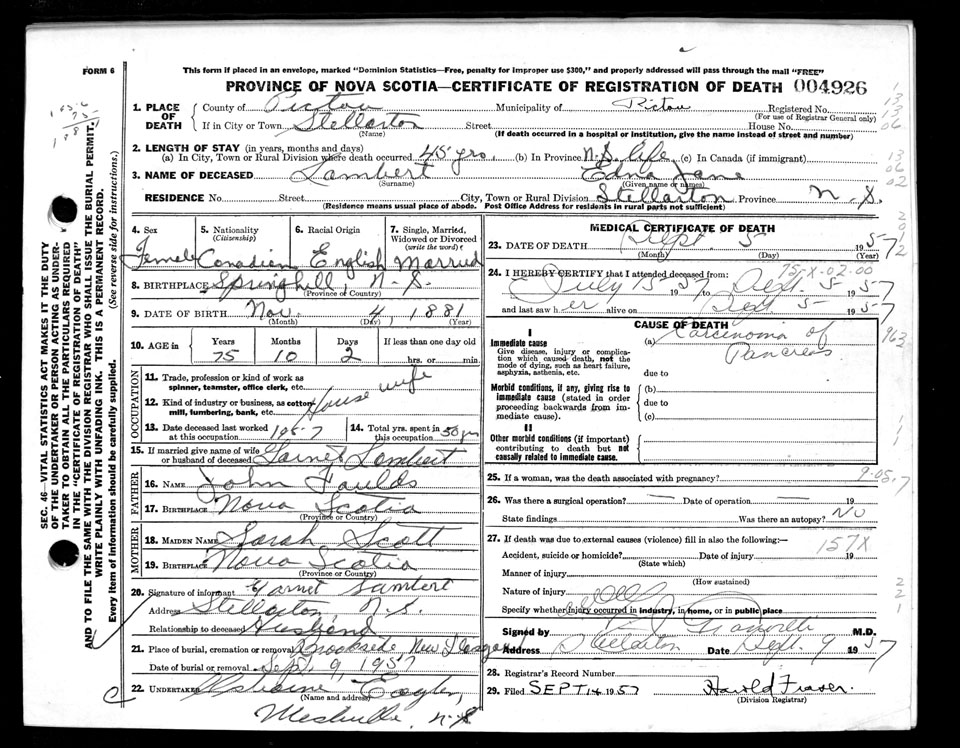 FORM 6
This form if placed in an envelope, marked "Dominion Statistics—Free, penalty for improper use $300," and properly addressed will pass through the mail "FREE"
PROVINCE OF NOVA SCOTIA—CERTIFICATE OF REGISTRATION OF DEATH 004926
1. PLACE OF DEATH
County of Pictou Municipality of Pictou Registered No.
(For use of Registrar General only)
If in City or Town Stellarton Street House No.
(Name) (If death occurred in a hospital or institution, give the name instead of street and number)
2. LENGTH OF STAY (in years, months and days)
(a) In City, Town or Rural Division where death occurred 45 yrs. (b) In Province N.S. life (c) In Canada (if immigrant)
3. NAME OF DECEASED Lambert Edna Jane
(Surname) (Given name or names)
RESIDENCE No. Street City, Town or Rural Division Stellarton Province N.S.
(Residence means usual place of abode. Post Office Address for residents in rural parts not sufficient)
SEC. 46—VITAL STATISTICS ACT MAKES IT THE DUTY
OF THE UNDERTAKER OR PERSON ACTING AS UNDER-
TAKER TO OBTAIN ALL THE PARTICULARS REQUIRED
IN THE "CERTIFICATE OF REGISTRATION OF DEATH"
AND TO FILE THE SAME WITH THE DIVISION REGISTRAR WHO SHALL ISSUE THE BURIAL PERMIT.
WRITE PLAINLY WITH UNFADING INK. THIS IS A PERMANENT RECORD.
Every item of information should be carefully supplied. (See reverse side for instructions.)
4. Sex Female
5. Nationality (Citizenship) Canadian
6. Racial Origin English
7. Single, Married, Widowed or Divorced (write the word) Married
8. BIRTHPLACE Springhill, N.S.
(Province or Country)
9. DATE OF BIRTH Nov. 4, 1881
(Month) (Day) (Year)
10. AGE in Years Months Days If less than one day old
75 10 2 hrs. or min.
OCCUPATION
11. Trade, profession or kind of work as spinner, teamster, office clerk, etc.
12. Kind of industry or business, as cotton mill, lumbering, bank, etc. House wife
13. Date deceased last worked at this occupation 1957
14. Total yrs. spent in this occupation 50 yrs
15. If married give name of wife or husband of deceased Garnet Lambert
FATHER
16. NAME John Faulds
17. BIRTHPLACE Nova Scotia
(Province or Country)
MOTHER
18. MAIDEN NAME Sarah Scott
19. BIRTHPLACE Nova Scotia
(Province or Country)
20. Signature of informant Garnet Lambert
Address Stellarton N.S.
Relationship to deceased Husband
21. Place of burial, cremation or removal Brookside, New Glasgow
Date of burial or removal Sept. 9, 1957
22. UNDERTAKER Eagles,
(Name and address)
N.S.
MEDICAL CERTIFICATE OF DEATH
23. DATE OF DEATH Sept. 5 1957
(Month) (Day)
75-X-02-00
24. I HEREBY CERTIFY that I attended deceased from:
July 15 1957 to Sept. 5 1957
and last saw her alive on Sept 5 1957
CAUSE OF DEATH
I
Immediate cause (a) Carcinoma of Pancreas
Give disease, injury or complication which caused death, not the mode of dying, such as heart failure, asphyxia, asthenia, etc.
due to
Morbid conditions, if any, giving rise to immediate cause (stated in order proceeding backwards from immediate cause).
(b)
due to
(c)
II
Other morbid conditions (if important) contributing to death but not causally related to immediate cause.
25. If a woman, was the death associated with pregnancy?
26. Was there a surgical operation? — Date of operation — 19
State findings Was there an autopsy? No
27. If death was due to external causes (violence) fill in also the following:—
157X
Accident, suicide or homicide? Date of injury 19
(State which)
Manner of injury
(How sustained)
Nature of injury
Specify whether injury occurred in industry, in home, or in public place
Signed by M.D.
Address Stellarton Date Sept. 9 1957
28. Registrar's Record Number
29. Filed SEPT 14 1957 Harold Fraser.
(Division Registrar)